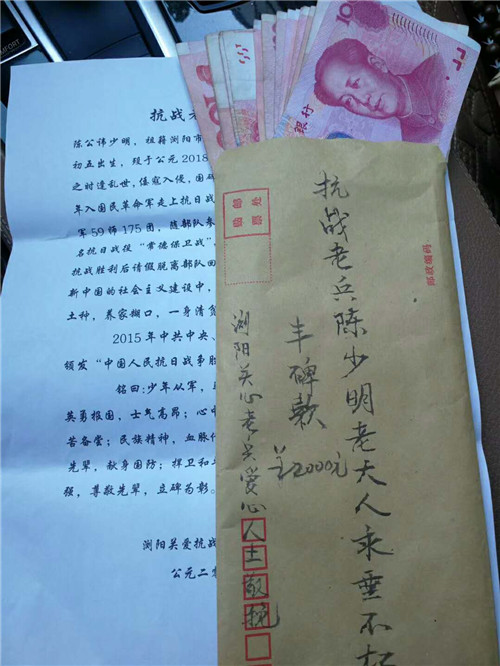 抗战老
陈公讳少明，祖籍浏阳市
初五出生，殁于公元2018
之时遭乱世，倭寇入侵，国
年入国民革命军走上抗日战
军59师175团，随部队参
名抗日战役“常德保卫战”
抗战胜利后请假脱离部队回
新中国的社会主义建设中，
土种，养家糊口，一身清
2015年中共中央、
颁发“中国人民抗日战争胜
铭曰：少年从军，
英勇报国，士气高昂；心
苦备尝；民族精神，血脉
先辈，献身国防；捍卫和
强，尊敬先辈，立碑为彰。
浏阳关爱抗战
公元二
100
抗战老兵陈少明老大人永垂不朽
丰碑款
2000元
浏阳关心老兵爱心人士敬挽
邮政编码